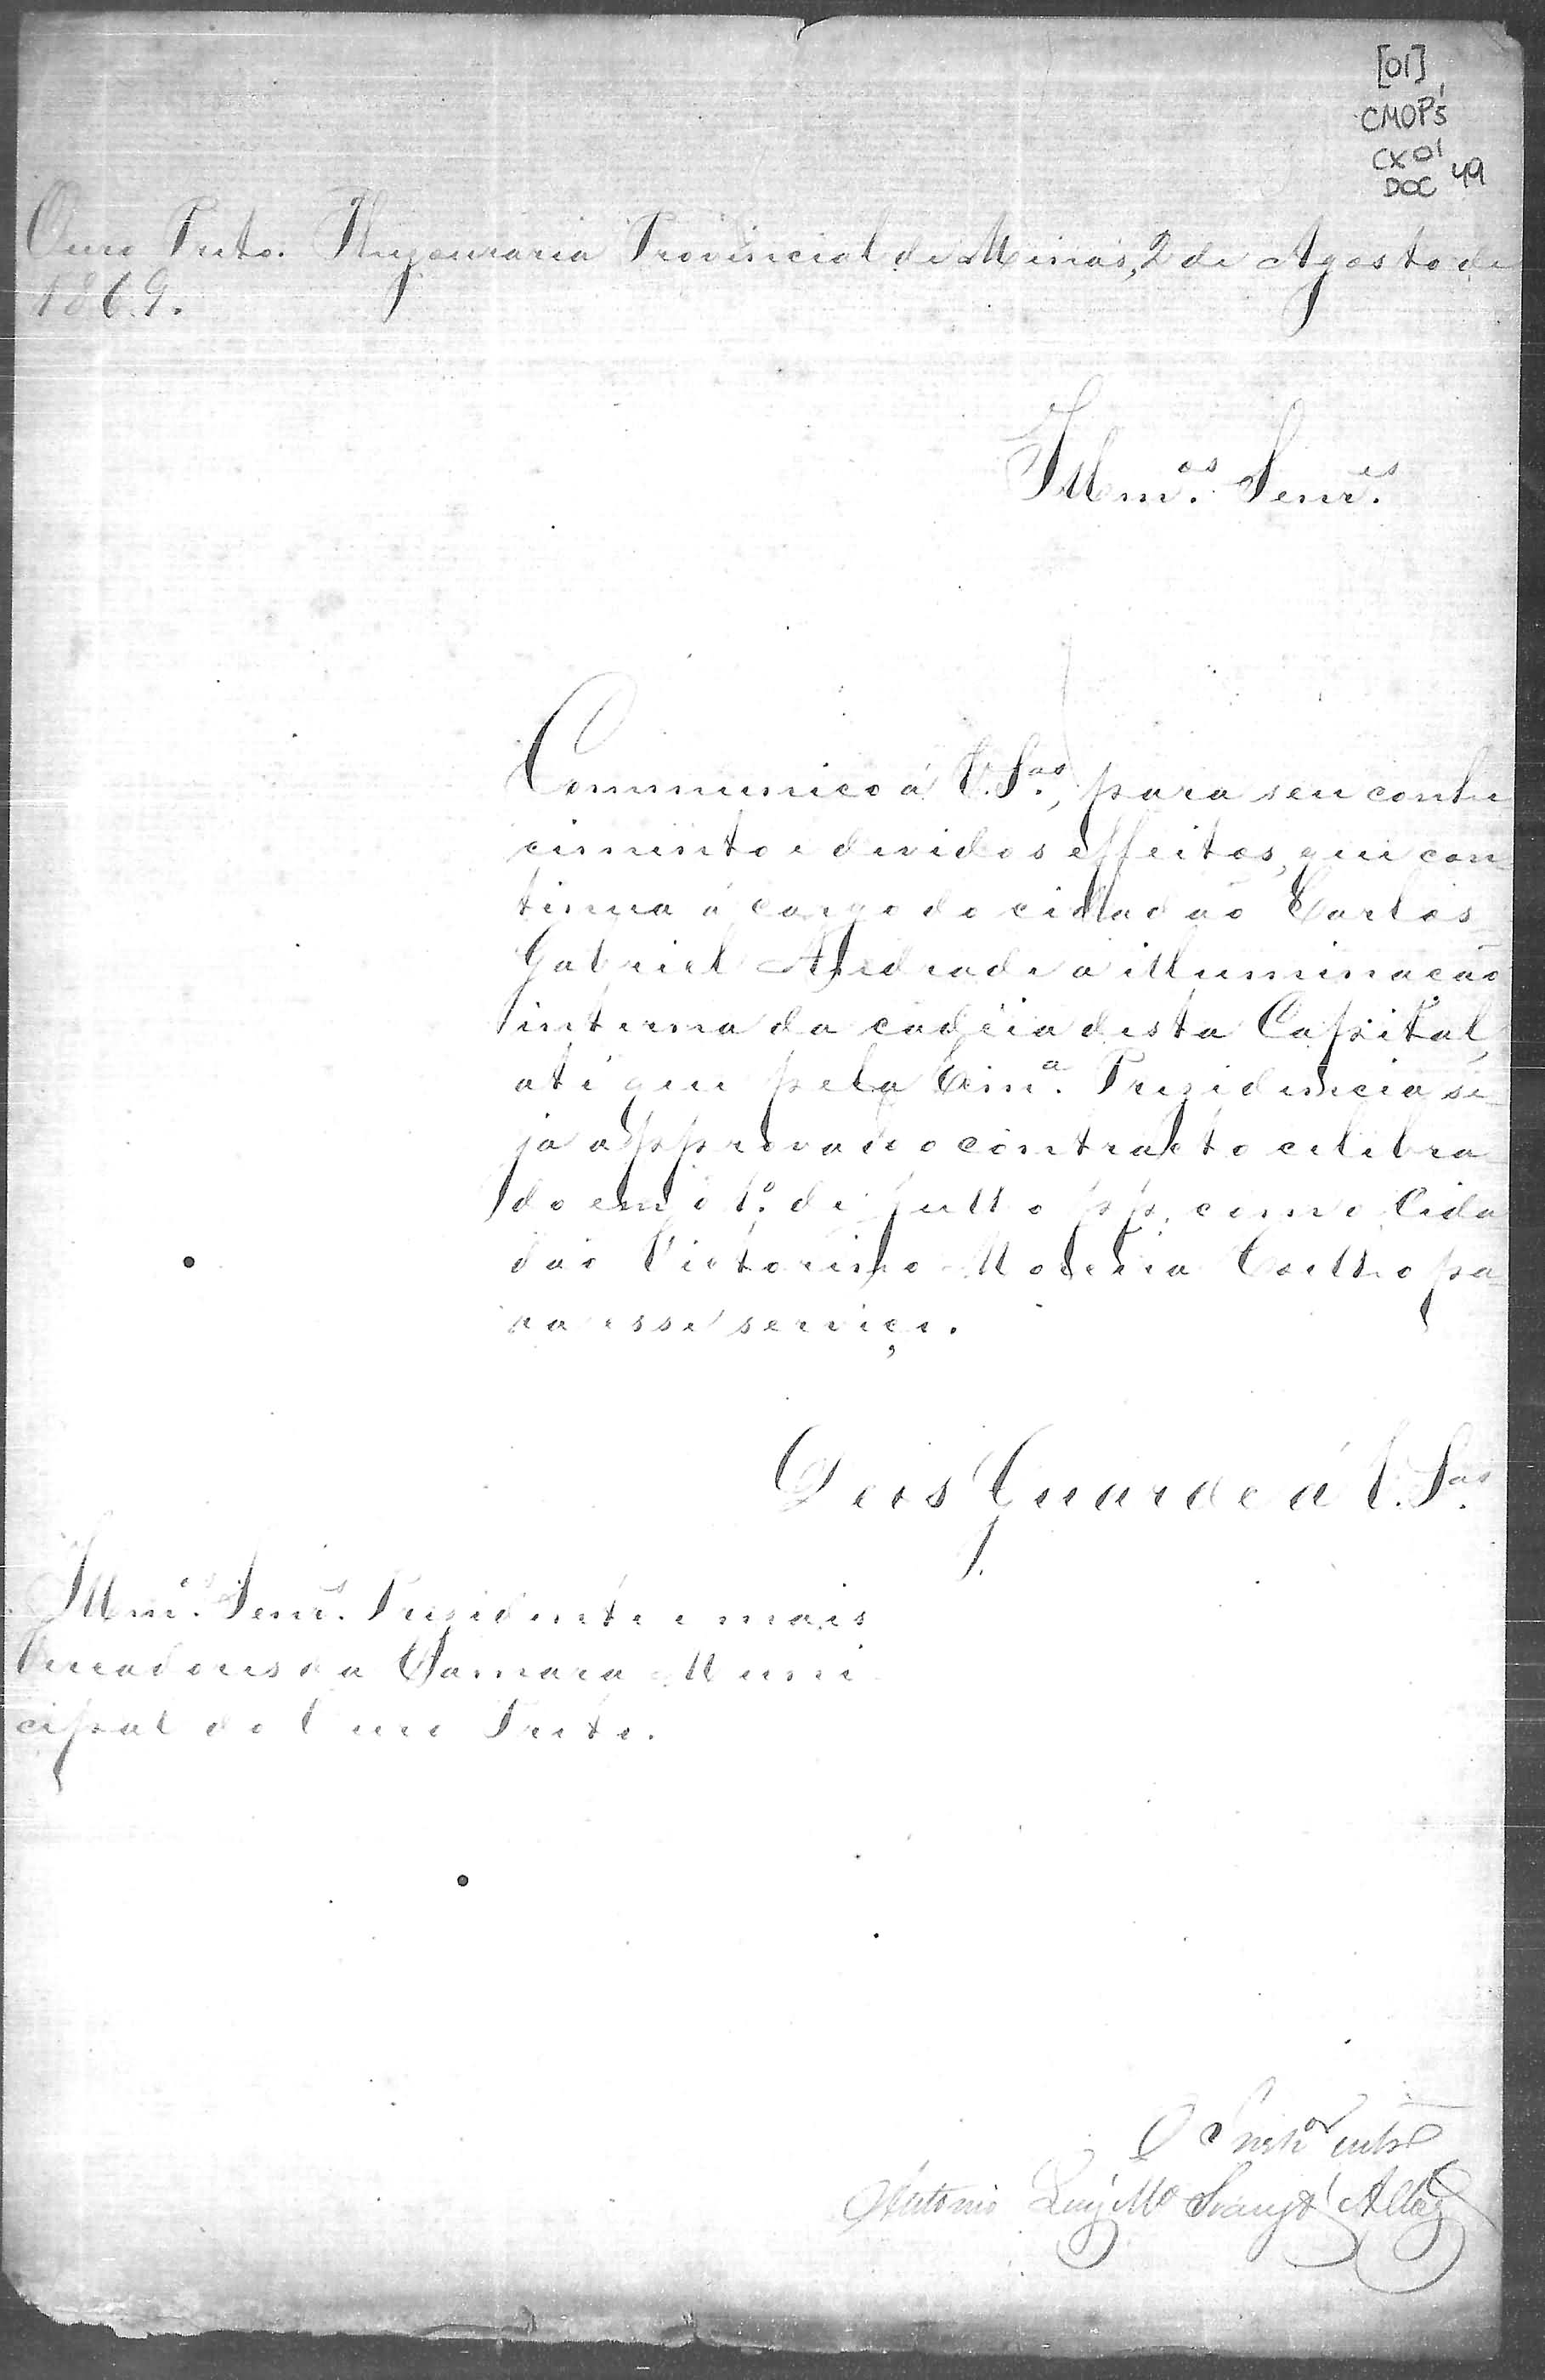 [01]
CMOP5
CX 01
DOC 49
Ouro Preto. Thezouraria Provincial de Minas, 2 de Agosto de
1869.
Illm.os Senr.es
Communico á V.Sas., para seu conhe
cimento e devidos effeitos, que con-
tinua á cargo do cidadão Carlos
Gabriel Andrade a illuminação
interna da cadêia desta Capital,
até que pela Exm.a Prezidencia se-
ja approvado o contracto celebra
do em o 1.o de Julho pp. com o Cida
dão Victorino Moreira Coelho pa-
ra esse serviço.
Deos Guarde á V. Sas.
Illm.os Senr.es Prezidente e mais
Vereadores da Camara Muni
cipal do Ouro Preto.
O
Antonio Luiz M.o